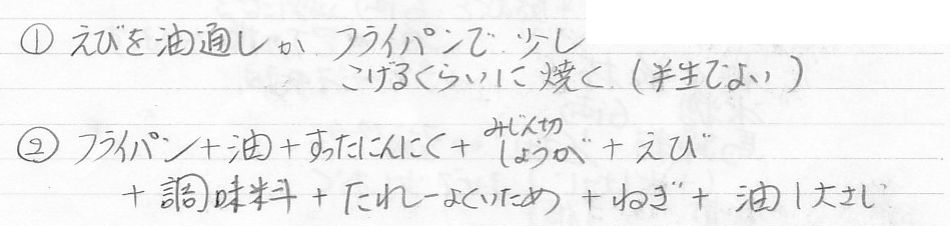 ① えびを油通しか フライパンで 少し
こげるくらいに 焼く (半生でよい)
② フライパン+油+すったにんにく+しょうが+えび
みじん切
+調味料+たれ→よくいため+ねぎ+油1大さじ